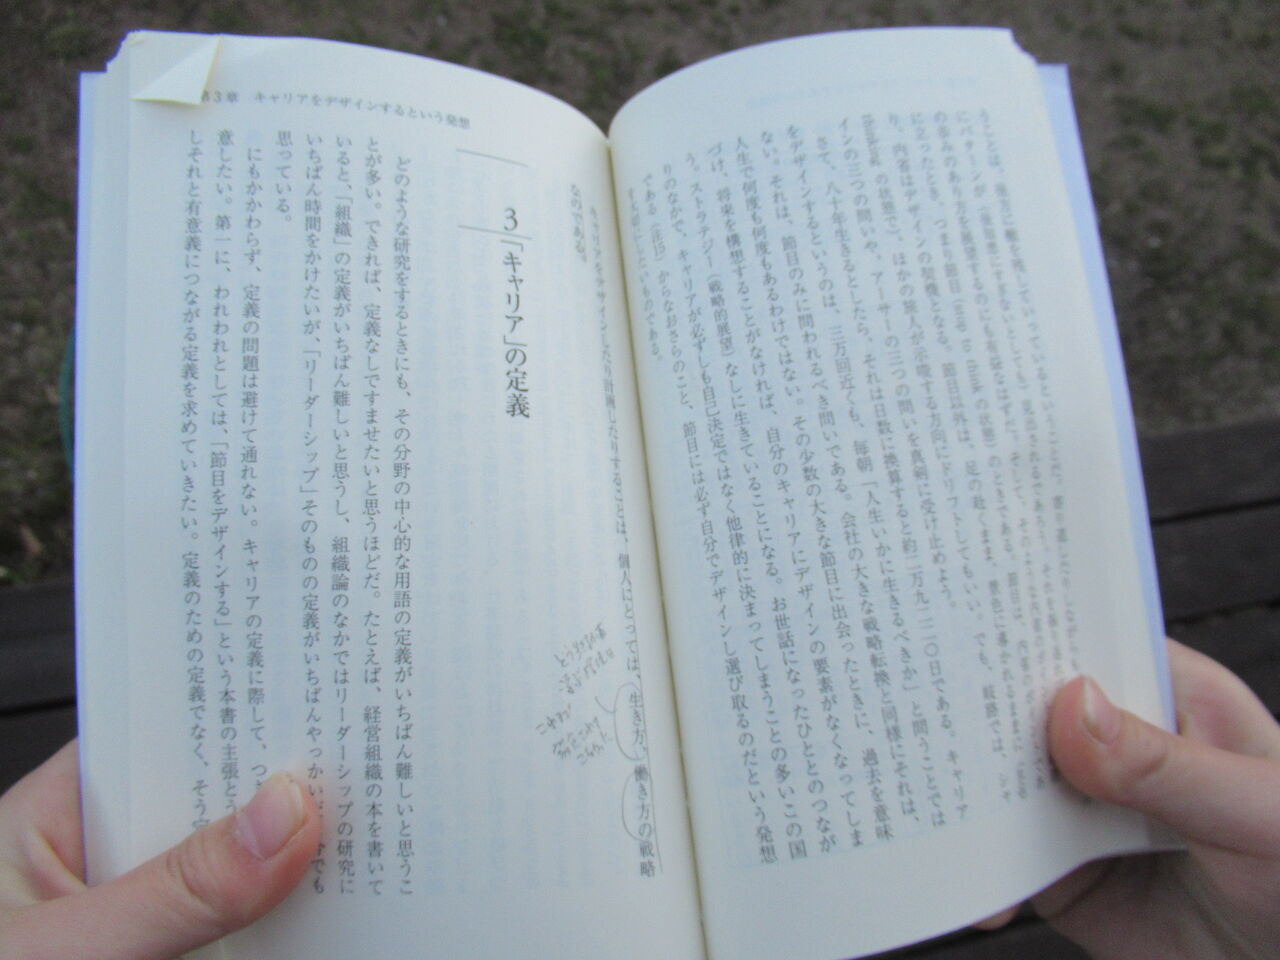 うことは、後方に轍を残していっているということだ。
にパターンが（後知恵にすぎないとしても）見出されるであろう。それを振り返
の歩みのあり方を展望するのにも有益なはずだ。そして、そのような内省の
に立ったとき、つまり節目（time to think の状態）のときである。節目は、内省の
り、内省はデザインの契機となる。節目以外は、足の赴くまま、景色に導かれるままに（no
thinking の状態で）、ほかの旅人が示唆する方向にドリフトしてもいい。でも、岐路では、シャ
インの三つの問いや、アーサーの三つの問いを真剣に受け止めよう。
さて、八十年生きるとしたら、それは日数に換算すると約二万九二二〇日である。キャリア
をデザインするというのは、三万回近くも、毎朝「人生いかに生きるべきか」と問うことでは
ない。それは、節目のみに問われるべき問いである。会社の大きな戦略転換と同様にそれは、
人生で何度も何度もあるわけではない。その少数の大きな節目に出会ったときに、過去を意味
づけ、将来を構想することがなければ、自分のキャリアにデザインの要素がなくなってしま
う。ストラテジー（戦略的展望）なしに生きていることになる。お世話になったひととのつながり
のなかで、キャリアが必ずしも自己決定ではなく他律的に決まってしまうことの多いこの国
である（注15）からなおさらのこと、節目には必ず自分でデザインし選び取るのだという発想
を大切にしたいものである。
第3章　キャリアをデザインするという発想
キャリアをデザインしたり計画したりすることは、個人にとっては、生き方、働き方の戦略
なのである。
3　「キャリア」の定義
どのような研究をするときにも、その分野の中心的な用語の定義がいちばん難しいと思うこ
とが多い。できれば、定義なしですませたいと思うほどだ。たとえば、経営組織の本を書いて
いると、「組織」の定義がいちばん難しいと思うし、組織論のなかではリーダーシップの研究に
いちばん時間をかけたいが、「リーダーシップ」そのものの定義がいちばんやっかい 今でも
思っている。
にもかかわらず、定義の問題は避けて通れない。キャリアの定義に際して、つ
意したい。第一に、われわれとしては、「節目をデザインする」という本書の主張と
しそれと有意義につながる定義を求めていきたい。定義のための定義でなく、そう